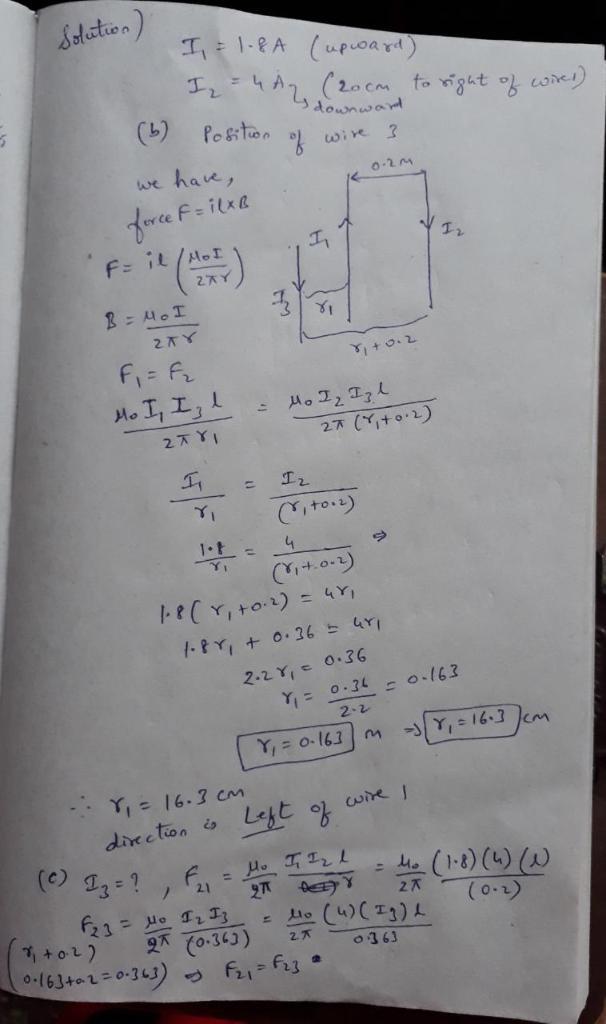 Solution)
I₁ = 1.8A (upward)
I₂ = 4 A (20cm to right of wire1)
↳ downward
(b) Position of wire 3
we have,
force F = il×B
F = il (μ₀I / 2πr)
B = μ₀I / 2πr
0.2m
I₁
I₂
I₃
r₁
r₁+0.2
F₁ = F₂
μ₀ I₁ I₃ l / 2πr₁ = μ₀ I₂ I₃ l / 2π (r₁+0.2)
I₁ / r₁ = I₂ / (r₁+0.2)
1.8 / r₁ = 4 / (r₁+0.2) ⇒
1.8( r₁+0.2) = 4r₁
1.8r₁ + 0.36 = 4r₁
2.2 r₁ = 0.36
r₁ = 0.36 / 2.2 = 0.163
r₁ = 0.163 m ⇒ r₁ = 16.3 cm
∴ r₁ = 16.3 cm
direction is Left of wire 1
(c) I₃ = ? , F₂₁ = μ₀ / 2π I₁ I₂ l / r = μ₀ / 2π (1.8)(4)(l) / (0.2)
F₂₃ = μ₀ / 2π I₂ I₃ / (0.363) = μ₀ / 2π (4)(I₃) l / 0.363
(r₁ + 0.2)
0.163+0.2 = 0.363) ⇒ F₂₁ = F₂₃